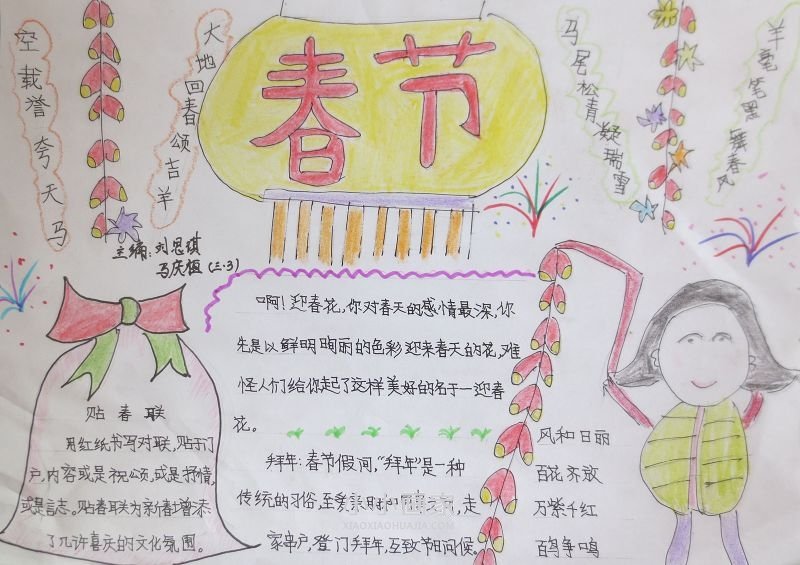 春节
空载誉夸天马
大地回春颂吉羊
马尾松青凝瑞雪
羊毫笔墨舞春风
主编：刘思琪
马庆恒(三·3)
啊！迎春花，你对春天的感情最深，你
先是以鲜明绚丽的色彩迎来春天的花，难
怪人们给你起了这样美好的名子一迎春
花。
拜年：春节假间，“拜年”是一种
传统的习俗，至
走
家串户，登门拜年，互致节日问候。
贴春联
用红纸书写对联，贴于门
户，内容或是祝颂，或是抒情，
或是言志。贴春联为新春增添
了几许喜庆的文化氛围。
风和日丽
百花齐放
万紫千红
百鸟争鸣
小小画家
XIAOXIAOHUAJIA.COM